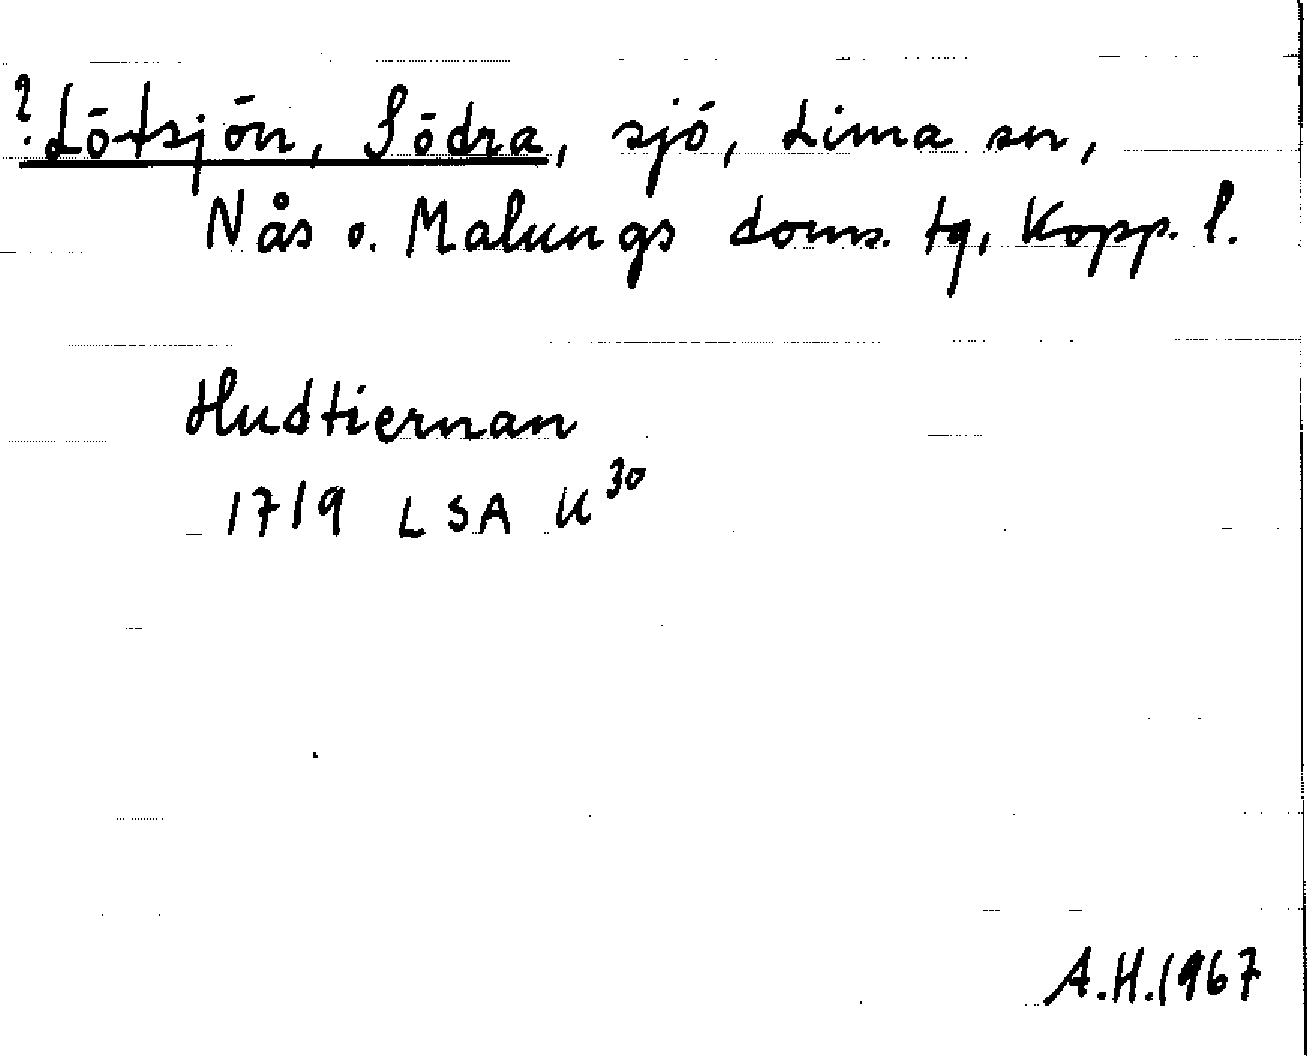 ? Lötsjön, Södra, sjö, Lima sn,
Nås o. Malungs doms. tg, Kopp. l.
Hudtiernan
1719 LSA K³⁰
A.H.1967